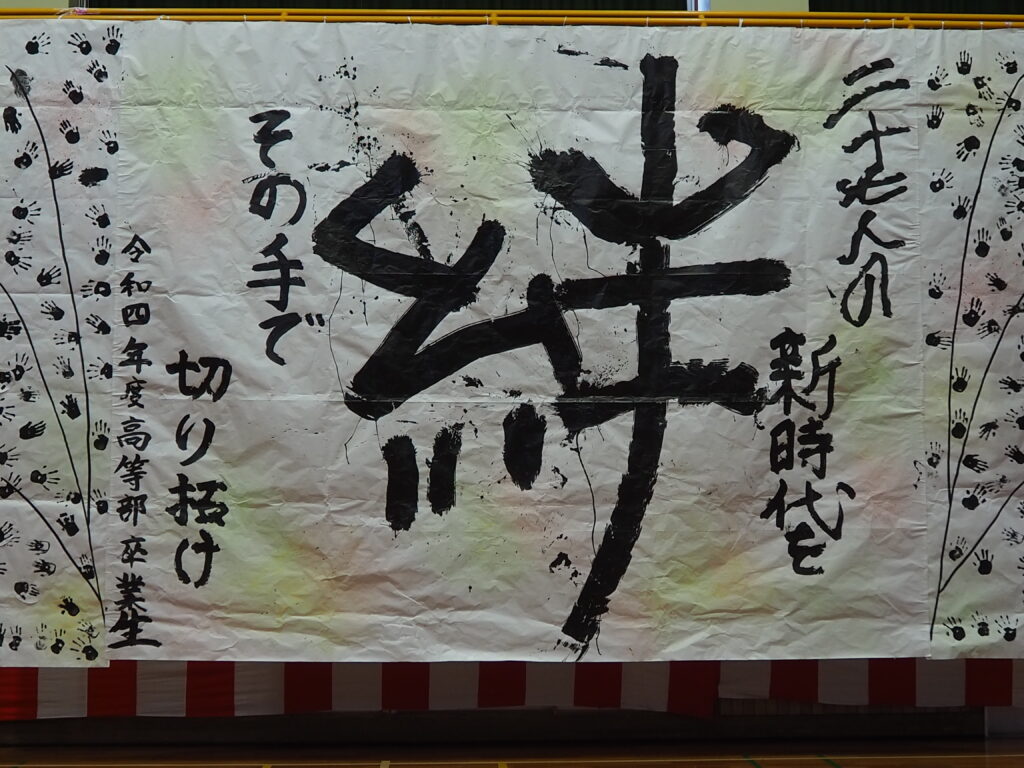 二十七人の
新時代を
絆
その手で
切り拓け
令和四年度高等部卒業生